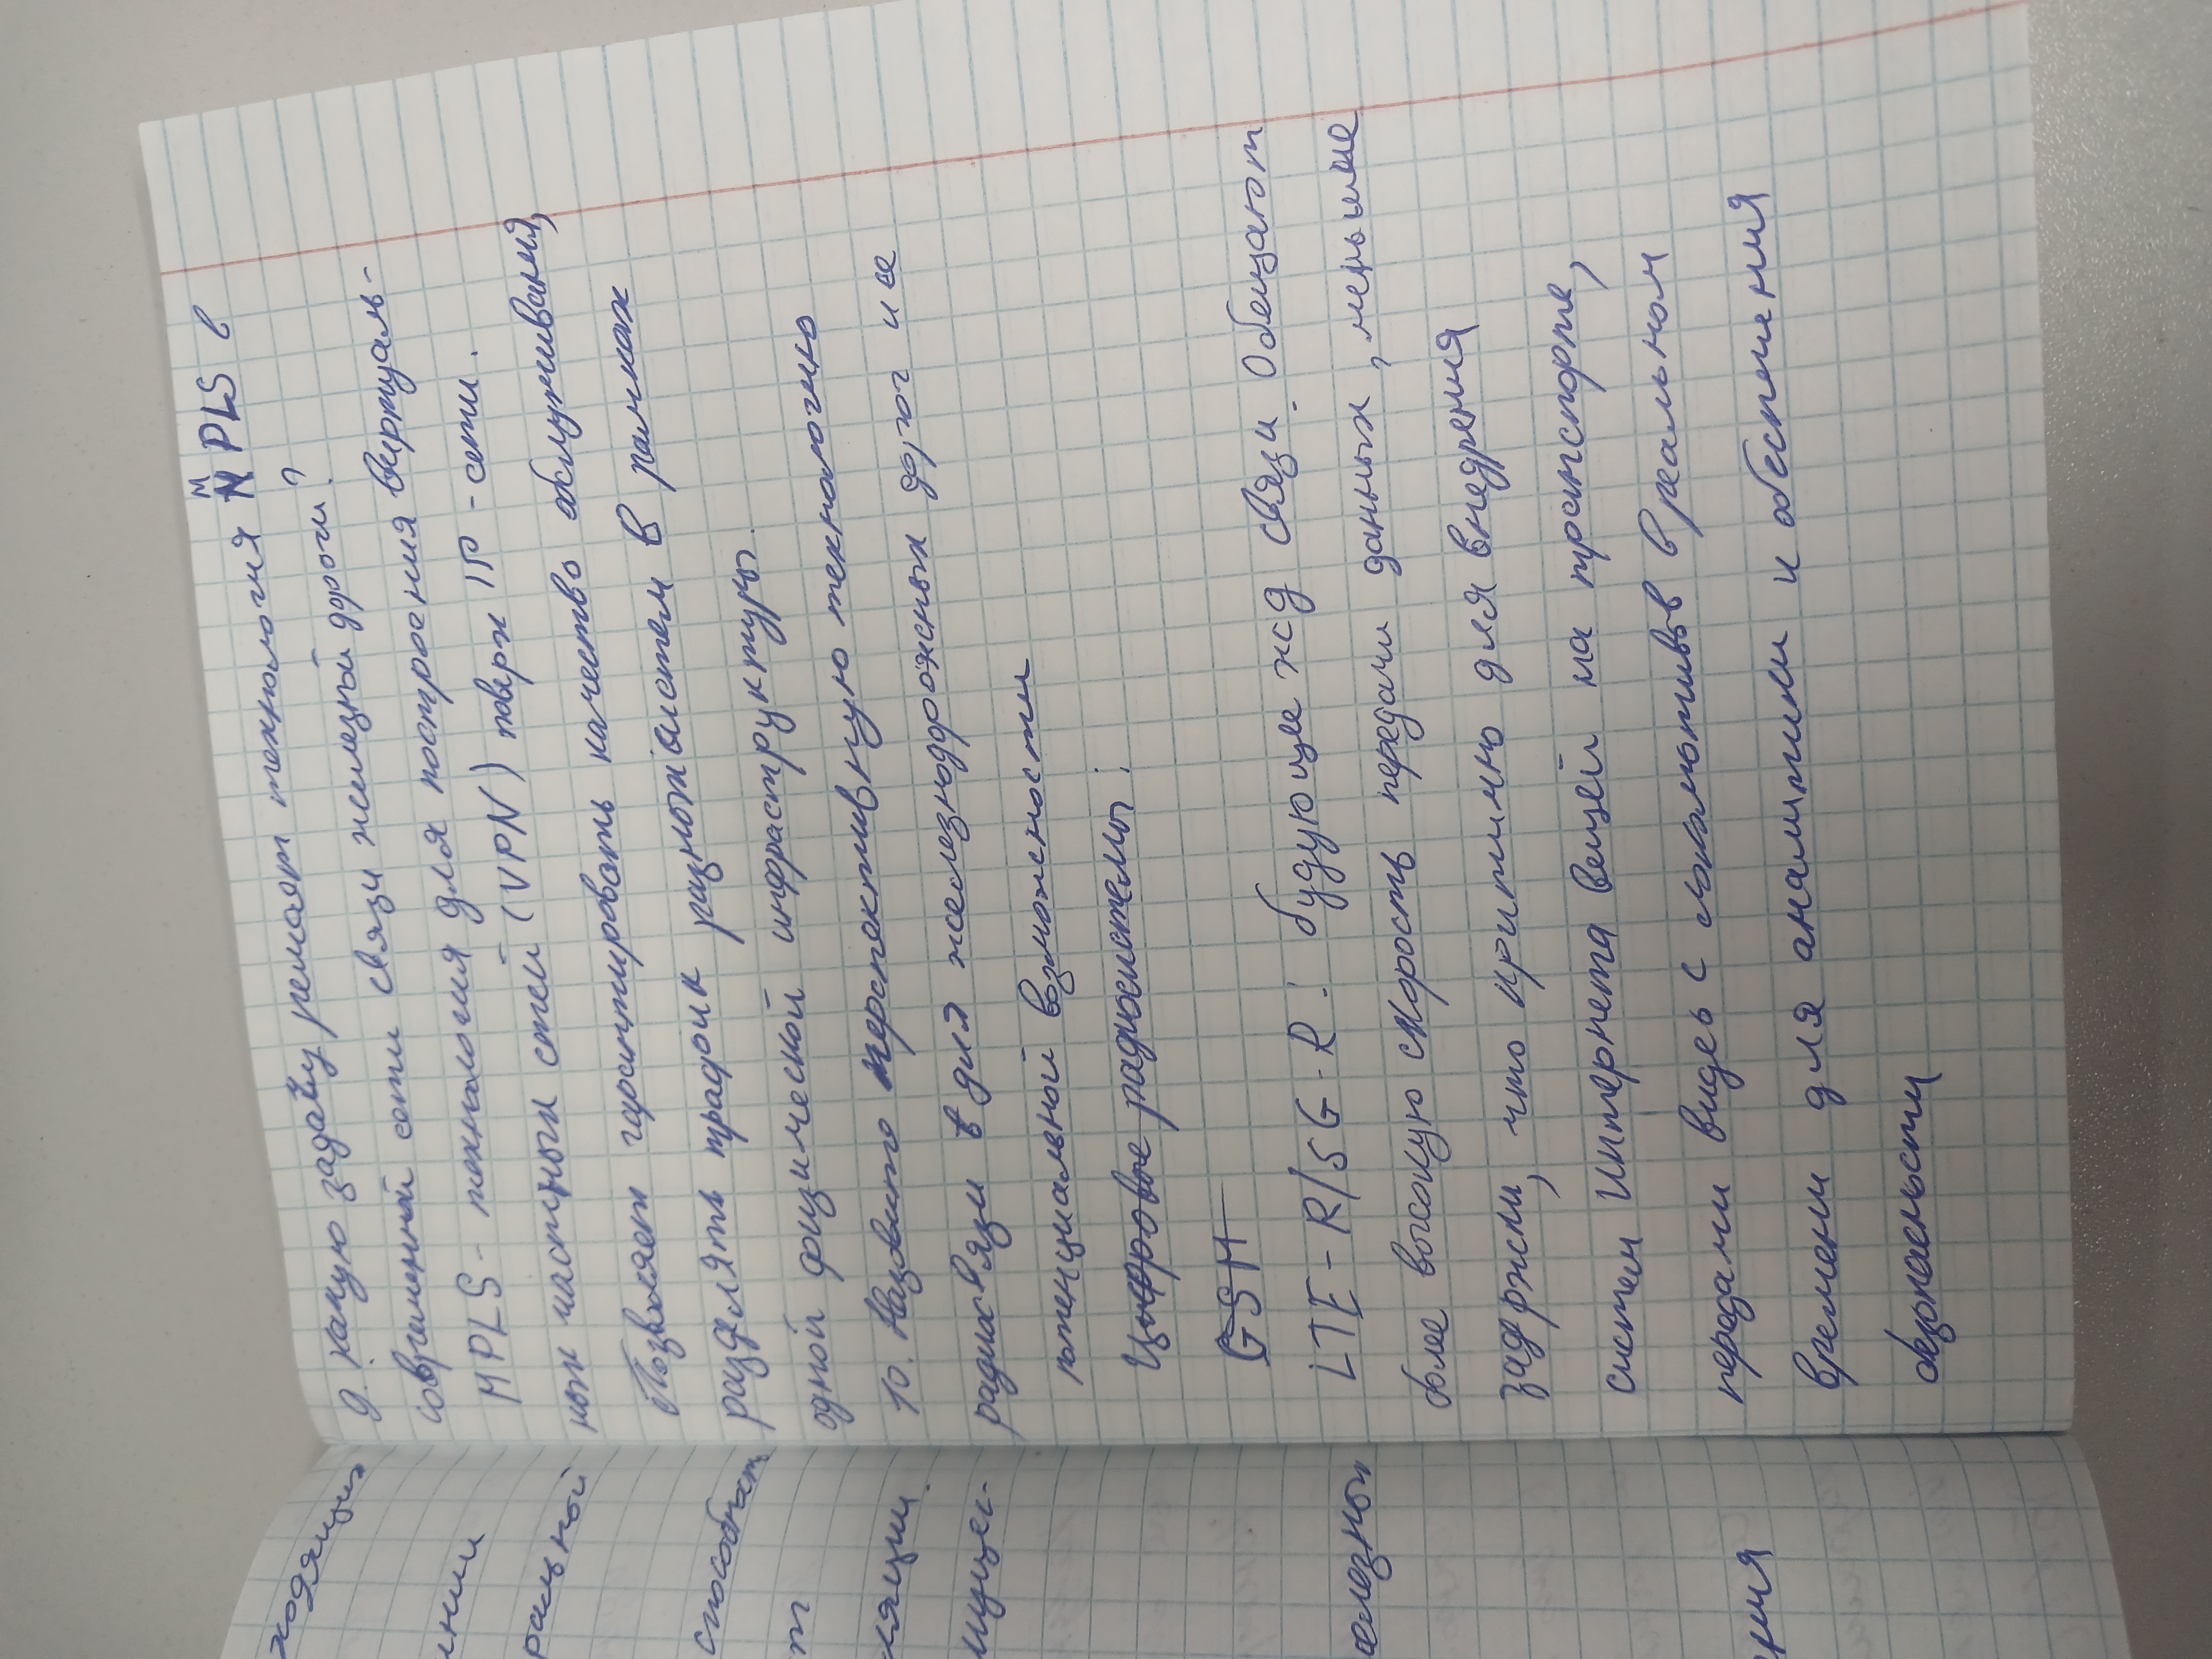 9. Какую задачу решает технология MPLS в
современной сети связи железной дороги?
MPLS - технология для построения виртуаль-
ных частных стей (VPN) поверх IP-сети.
Позволяет гарантировать качество обслуживания,
разделять трафик разных систем в рамках
одной физической инфраструктуры.
10. Назовите перспективную технологию
радиосвязи для железнодорожных дорог и ее
потенциальной возможности
Цифровые радиосистемы:
GSM
LTE-R/5G-R: будующее жд связи. Обещают
более высокую скорость передачи данных, меньшие
задержки, что критично для внедрения
систем Интернета вещей на транспорте,
передачи видео с локомотивов в реальном
времени для аналитики и обеспечения
безопасности
ходящих
нии
ральной
способност
т
ляции.
ущес-
железны
рия